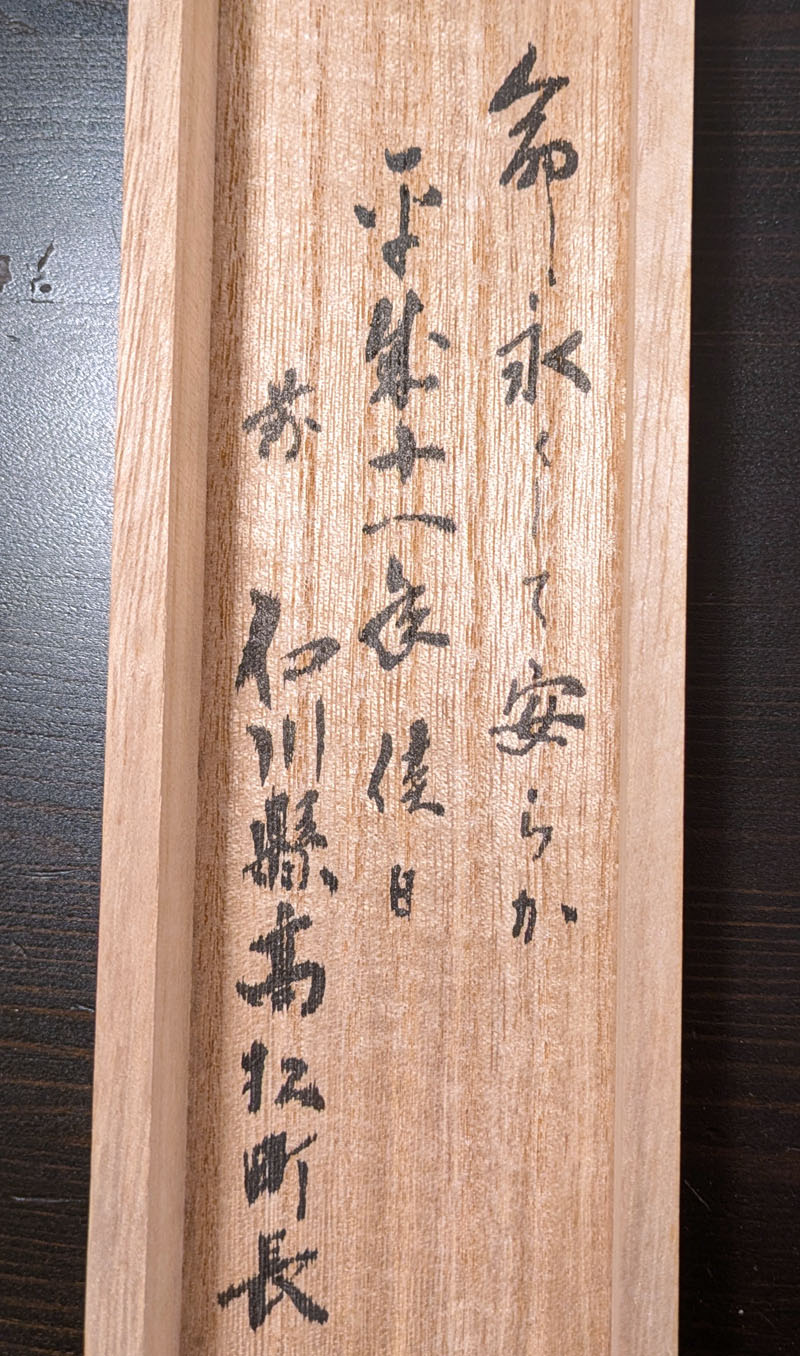 命永くして安らか
平成十八年佳日
前 石川縣高松町長